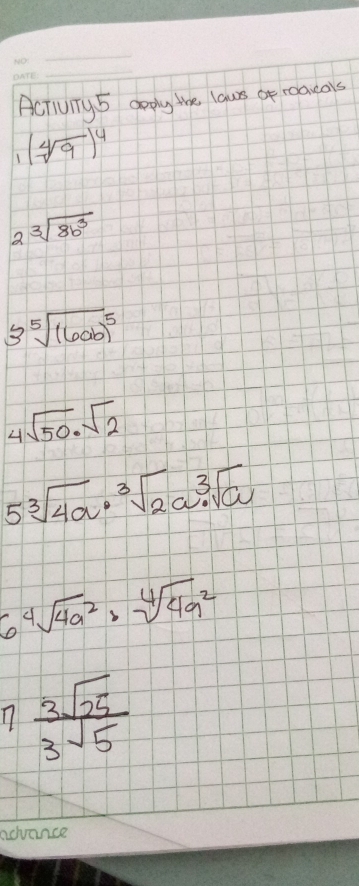 NO:
DATE
ACTIVITY 5 apply the laws of radicals
1 (∜9)^4
2 ∛(8b^3)
3 ⁵√(6ab)^5
4 √50 · √2
5 ∛4a · ∛2a · ∛a
6 ∜4a^2 · ∜4a^2
7 3√25 / 3√5
advance